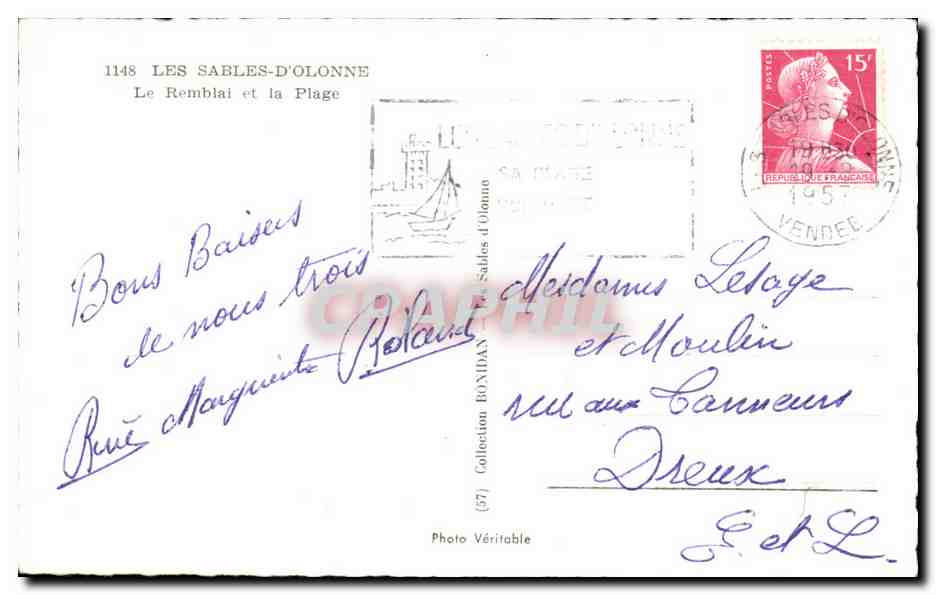 1148 LES SABLES-D'OLONNE
Le Remblai et la Plage
POSTES
15F
REPUBLIQUE FRANCAISE
LES SABLES D'OLONNE
1957
VENDEE
LES SABLES D'OLONNE
SA PLAGE
Bons Baisers
de nous trois
René Marguerite Roland
(57) Collection BONIDAN - Les Sables d'Olonne
CPAPHIL
Mesdames Lesage
et Moulin
rue aux Tanneurs
Dreux
E. et L.
Photo Véritable